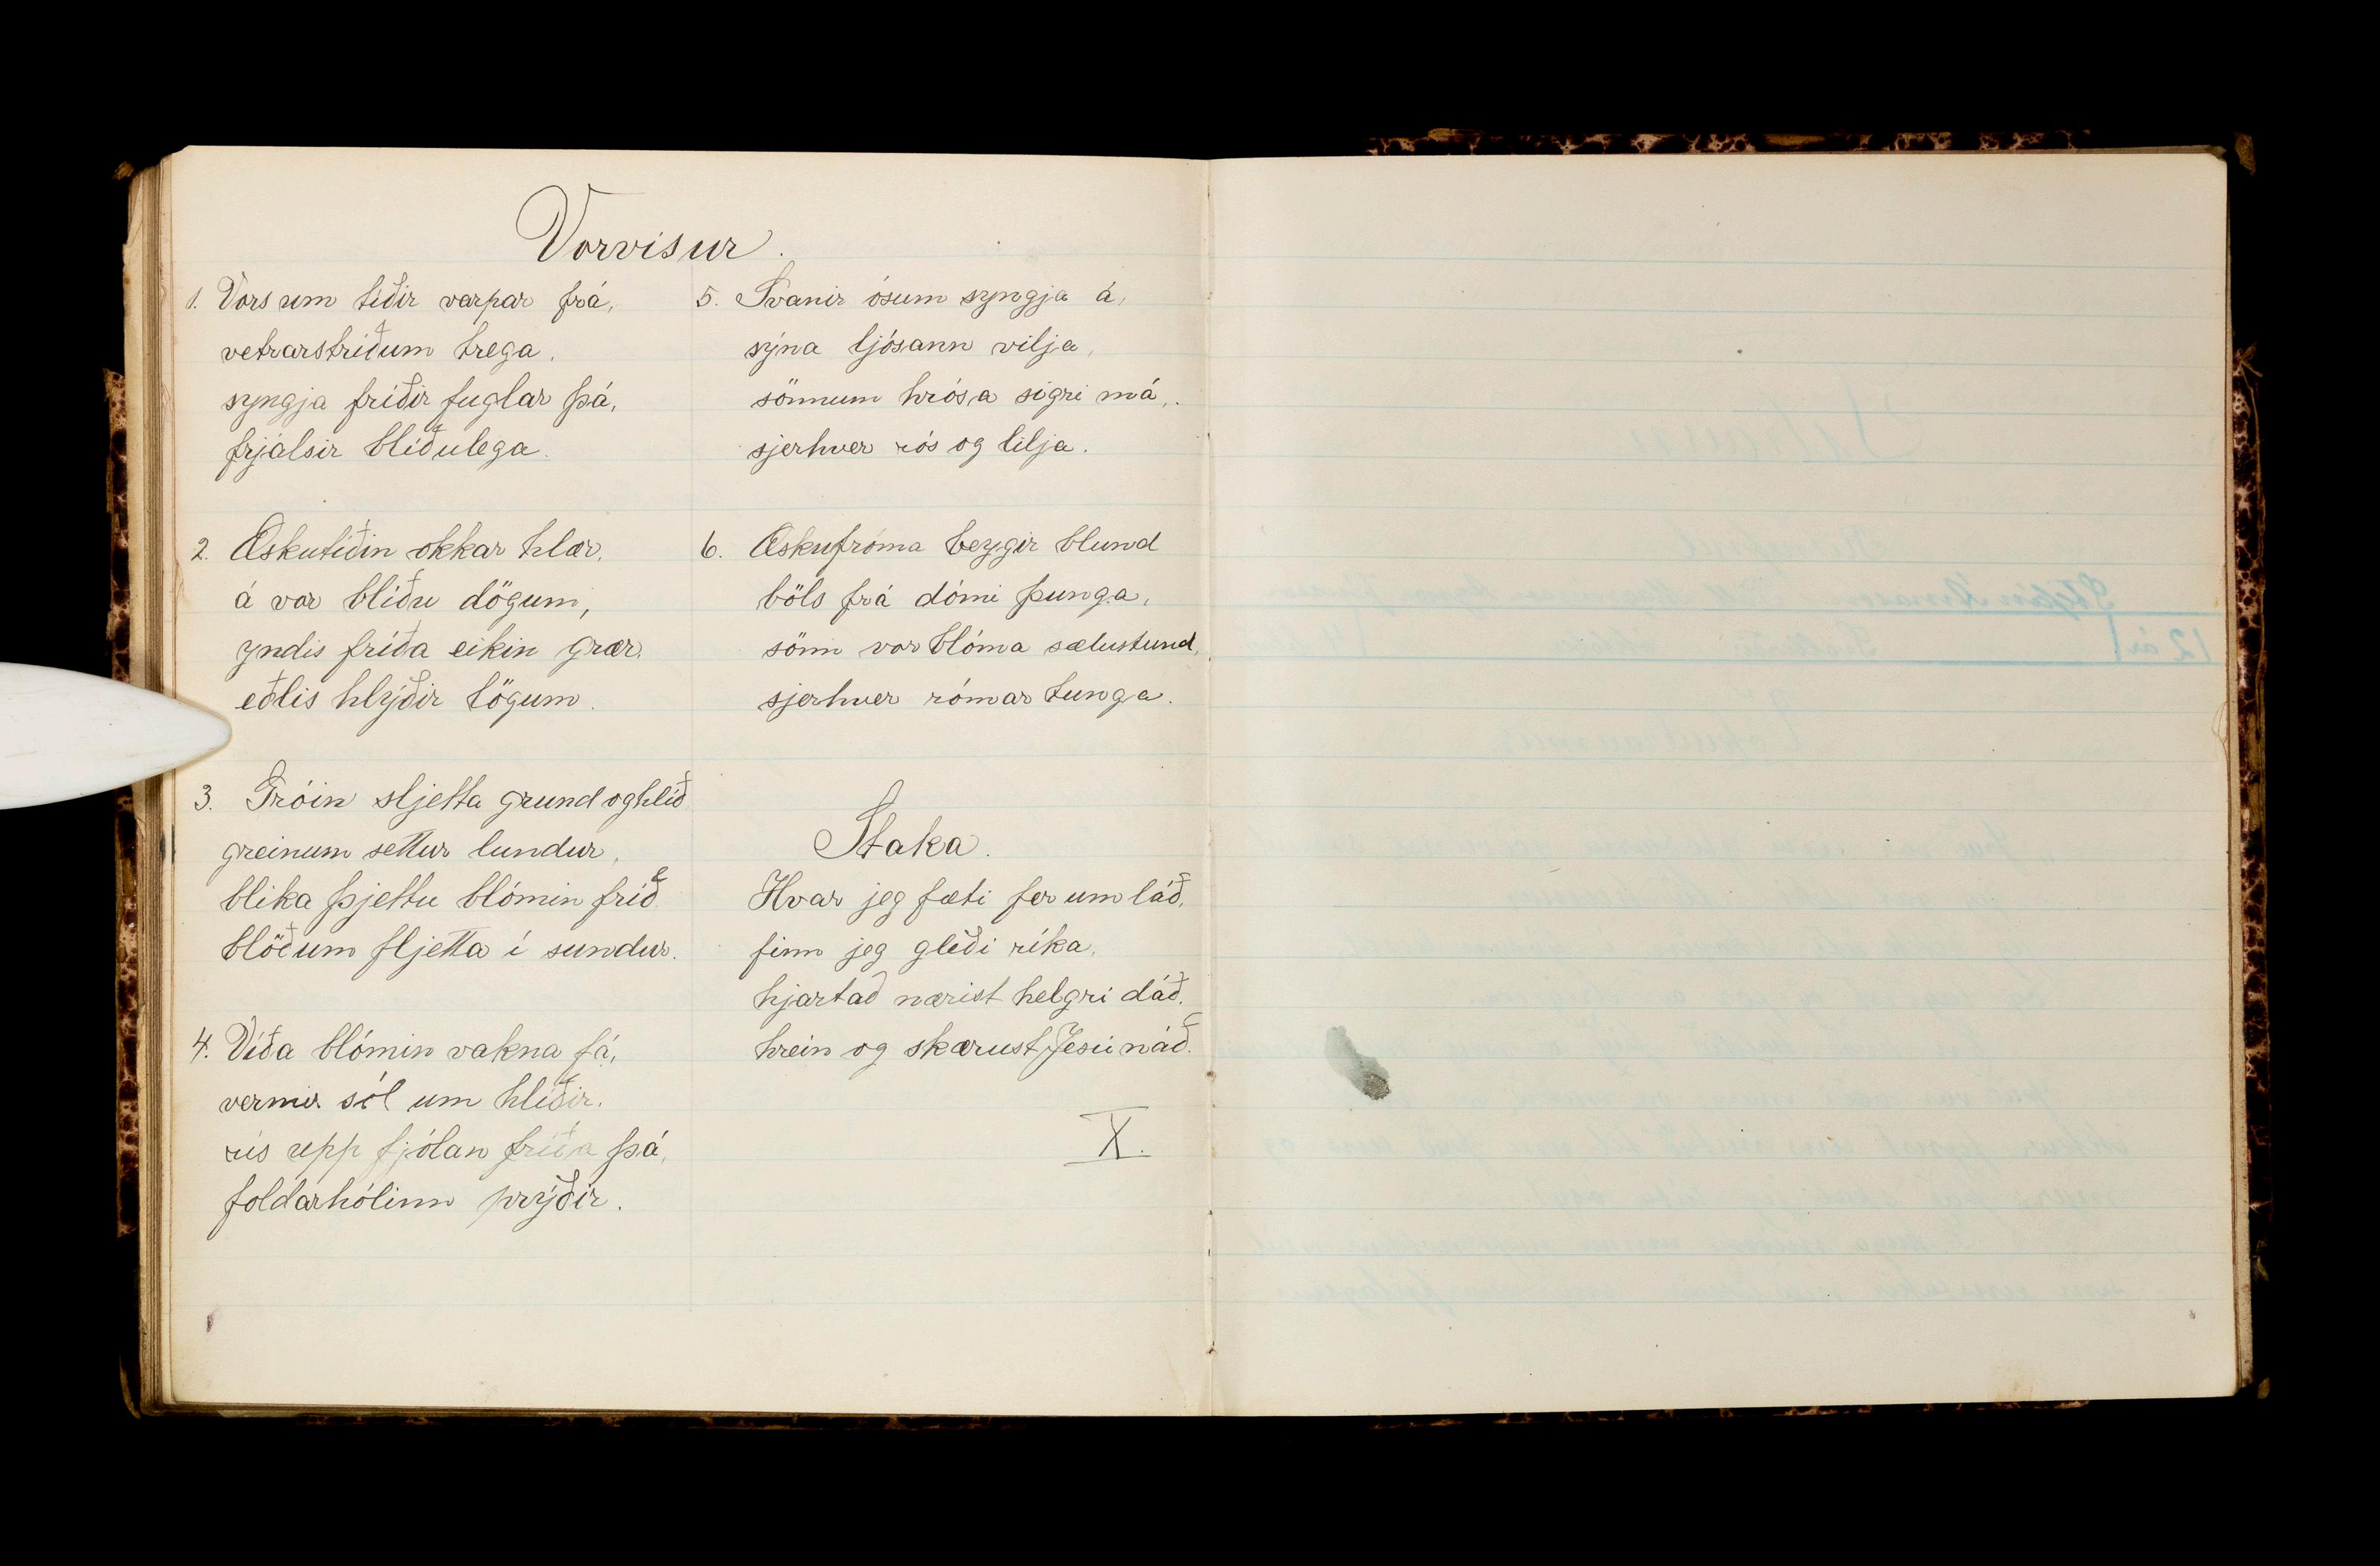 Vorvisur.
1. Vors um tíðir varpar frá,
vetrarstríðum trega,
syngja fríðir fuglar þá,
frjálsir blíðulega.
2. Æskutíðin okkar hlær,
á vor blíðu dögum,
yndis fríða eikin grær,
eðlis hlýðir lögum.
3. Gróin sljetta grund og hlíð
greinum settur lundur,
blika þjettu blómin fríð
blöðum fljetta í sundur.
4. Víða blómin vakna fá,
vermir sól um hlíðir.
rís upp fjólan fríða þá,
foldarhólinn prýðir.
5. Svanir ósum syngja á,
sýna ljósann vilja,
sönnum hrósa sigri má,
sjerhver rós og lilja.
6. Æskufróma beygir blund
böls frá dómi þunga,
sönn vor blóma sælustund,
sjerhver rómar tunga.
Staka.
Hvar jeg fæti fer um láð,
finn jeg gleði ríka,
hjartað nærist helgri dáð,
hrein og skærust Jesú náð.
X.